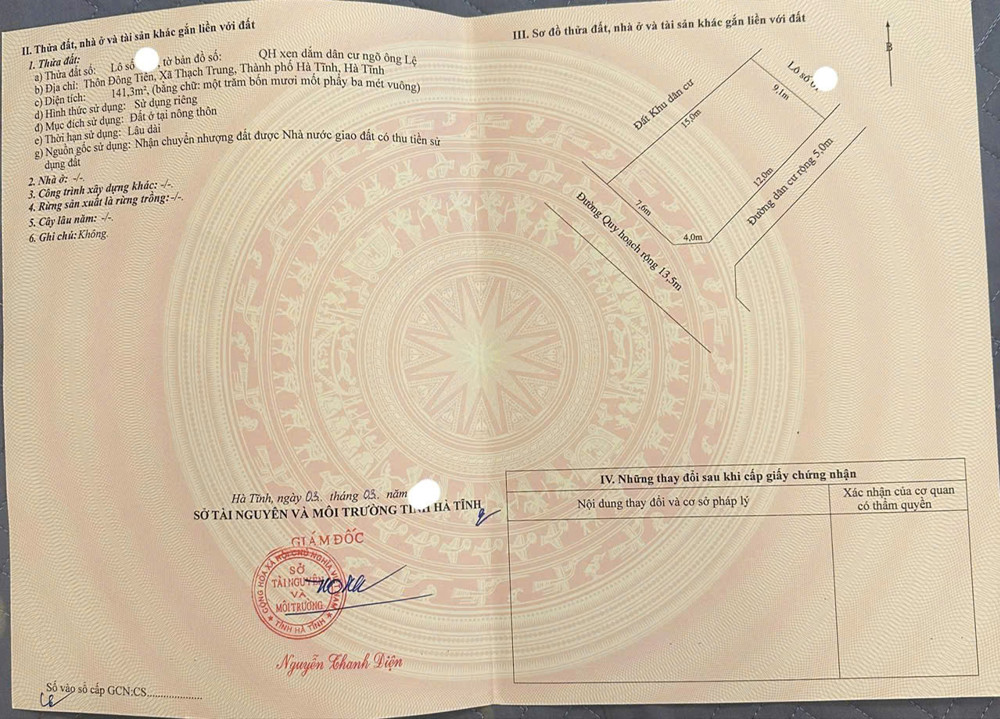 II. Thửa đất, nhà ở và tài sản khác gắn liền với đất
1. Thửa đất:
a) Thửa đất số: Lô số , tờ bản đồ số: QH xen dắm dân cư ngõ ông Lệ
b) Địa chỉ: Thôn Đông Tiến, Xã Thạch Trung, Thành phố Hà Tĩnh, Hà Tĩnh
c) Diện tích: 141,3m², (bằng chữ: một trăm bốn mươi mốt phẩy ba mét vuông)
d) Hình thức sử dụng: Sử dụng riêng
đ) Mục đích sử dụng: Đất ở tại nông thôn
e) Thời hạn sử dụng: Lâu dài
g) Nguồn gốc sử dụng: Nhận chuyển nhượng đất được Nhà nước giao đất có thu tiền sử
dụng đất
2. Nhà ở: -/-.
3. Công trình xây dựng khác: -/-.
4. Rừng sản xuất là rừng trồng:-/-.
5. Cây lâu năm: -/-.
6. Ghi chú: Không.
Hà Tĩnh, ngày 03 tháng 03 năm
SỞ TÀI NGUYÊN VÀ MÔI TRƯỜNG TỈNH HÀ TĨNH
GIÁM ĐỐC
CỘNG HÒA XÃ HỘI CHỦ NGHĨA VIỆT NAM
SỞ
TÀI NGUYÊN
VÀ
MÔI TRƯỜNG
TỈNH HÀ TĨNH
Nguyễn Thanh Điện
Số vào sổ cấp GCN:CS
III. Sơ đồ thửa đất, nhà ở và tài sản khác gắn liền với đất
B
Lô số
9,1m
Đất Khu dân cư
15,0m
12,0m
Đường dân cư rộng 5,0m
7,6m
4,0m
Đường Quy hoạch rộng 13,5m
IV. Những thay đổi sau khi cấp giấy chứng nhận
Nội dung thay đổi và cơ sở pháp lý
Xác nhận của cơ quan
có thẩm quyền